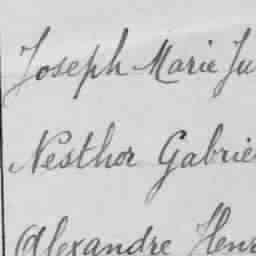 Joseph Marie Ju
Nesthor Gabrie
Alexandre Henr